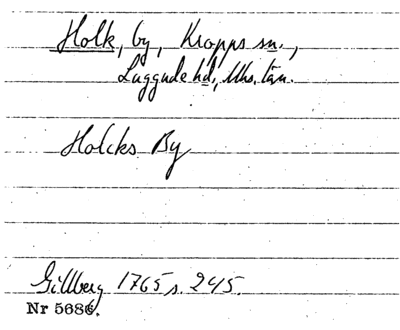 Holk, by, Kropps sn.,
Luggude hd., Mhs. län.
Holcks By
Gillberg 1765 s. 245.
Nr 5686.